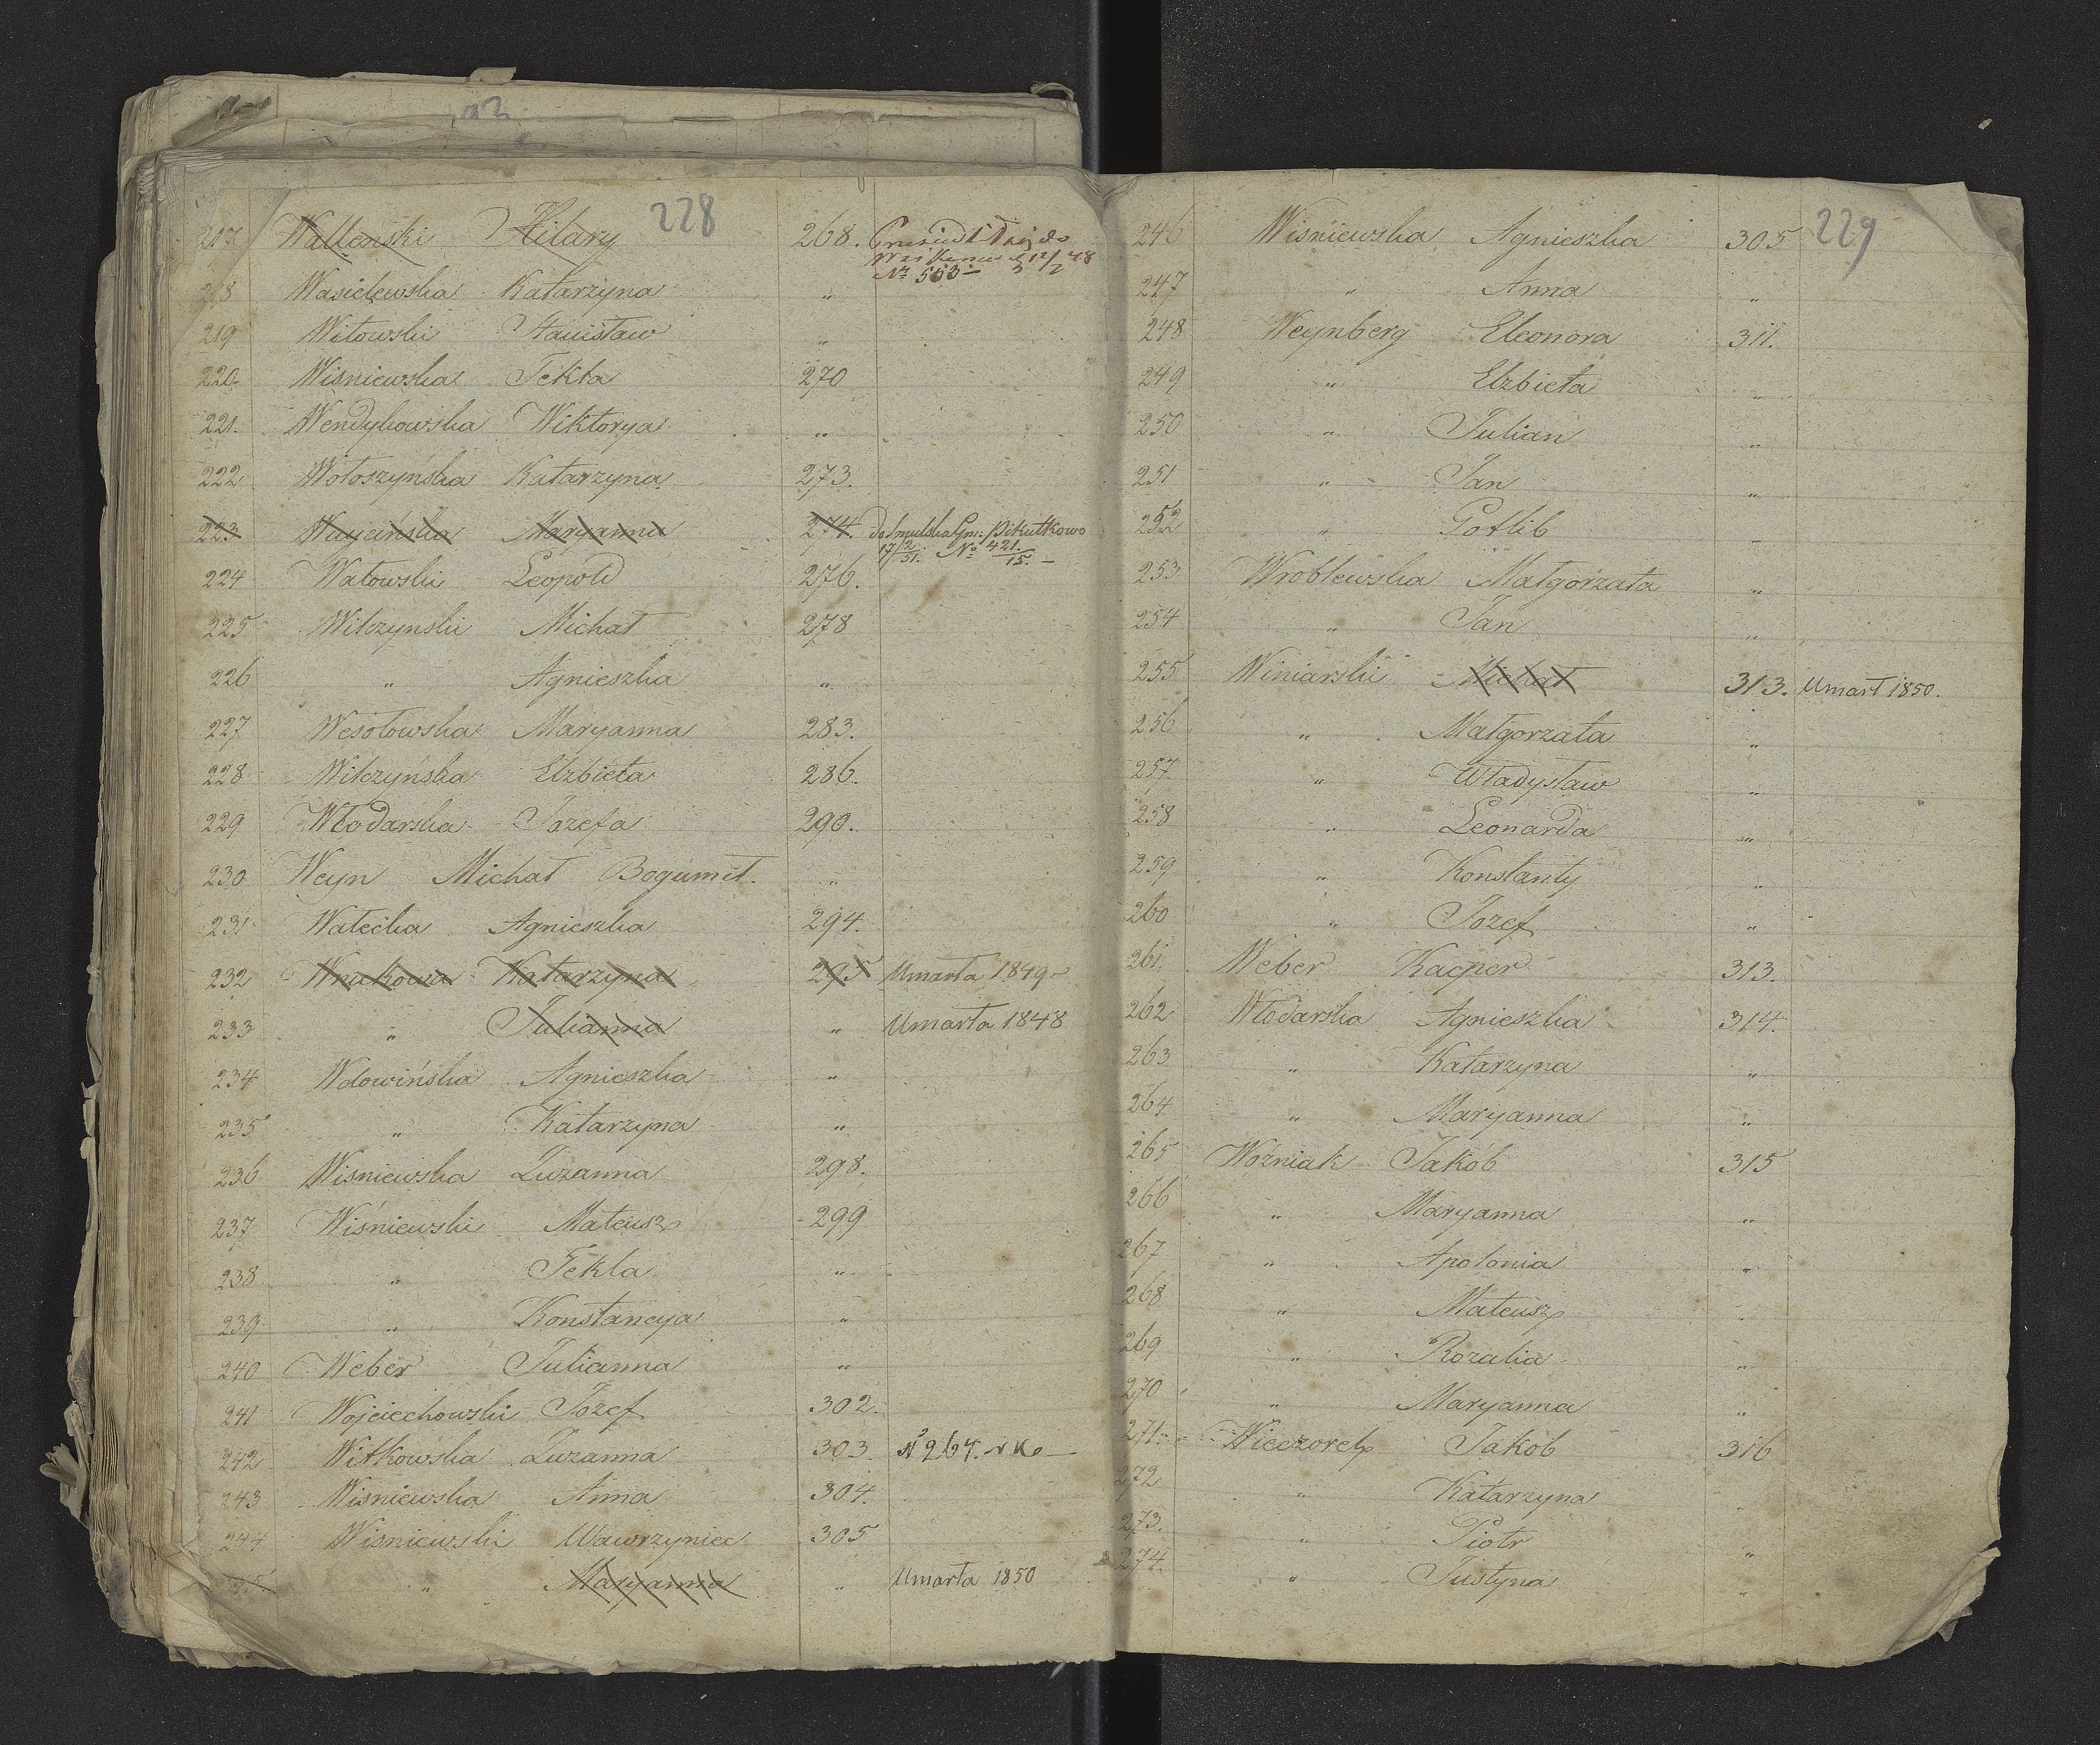 93
228
217 Wallenski Hilary 268.
No 503
218 Wasielewska Katarzyna "
219 Witowski Stanisław "
220. Wisniewska Tekla 270
221. Wendykowska Wiktorya "
222 Wołoszyńska Katarzyna 273.
223 Maryanna 274. Gm: Pikutkowo
17/2 51. No 421./15.
224 Watowski Leopold 276.
225 Wilczynski Michał 278
226 " Agnieszka "
227 Wesołowska Maryanna 283.
228 Wilczyńska Elzbieta 286.
229 Włodarska Jozefa 290.
230 Weyn Michał Bogumił "
231 Wałecka Agnieszka 294.
232 Wnukowa Katarzyna 295 Umarła 1849
233 " Julianna " Umarła 1848
234 Wdowińska Agnieszka "
235 " Katarzyna "
236 Wisniewska Zuzanna 298.
237 Wiśniewski Mateusz 299
238 " Tekla "
239 " Konstancya "
240 Weber Julianna "
241 Wojciechowski Jozef 302.
242 Witkowska Zuzanna 303. No 264.
243 Wisniewska Anna 304.
244 Wisniewski Wawrzyniec 305
245 " Maryanna " Umarła 1850
229
246 Wisniewska Agnieszka 305
247 " Anna "
248 Weynberg Eleonora 311.
249 " Elzbieta "
250 " Julian "
251 " Jan "
252 " Gotlib "
253 Wroblewska Małgorzata "
254 " Jan "
255 Winiarski Michał 313. Umarł 1850.
256 " Małgorzata "
257 " Władysław "
258 " Leonarda "
259 " Konstanty "
260 " Jozef "
261. Weber Kacper 313.
262 Włodarska Agnieszka 314.
263 " Katarzyna "
264 " Maryanna "
265 Woźniak Jakób 315
266 " Maryanna "
267 " Apolonia "
268 " Mateusz "
269 " Rozalia "
270 " Maryanna "
271 Wieczorek Jakob 316
272 " Katarzyna "
273. " Piotr "
274. " Justyna "